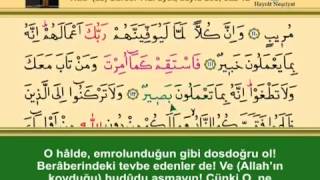 Hayrât Neşriyat
مُرِيبٍ ﴿١١٠﴾ وَاِنَّ كُلًّا لَمَّا لَيُوَفِّيَنَّهُمْ رَبُّكَ اَعْمَالَهُمْ اِنَّهُ
بِمَا يَعْمَلُونَ خَبِيرٌ ﴿١١١﴾ فَاسْتَقِمْ كَمَٓا اُمِرْتَ وَمَنْ تَابَ مَعَكَ
وَلَا تَطْغَوْا اِنَّهُ بِمَا تَعْمَلُونَ بَصِيرٌ ﴿١١٢﴾ وَلَا تَرْكَنُٓوا اِلَى الَّذِينَ
O hâlde, emrolunduğun gibi dosdoğru ol!
Berâberindeki tevbe edenler de! Ve (Allah'ın
koyduğu) hudûdu aşmayın! Çünki O, ne